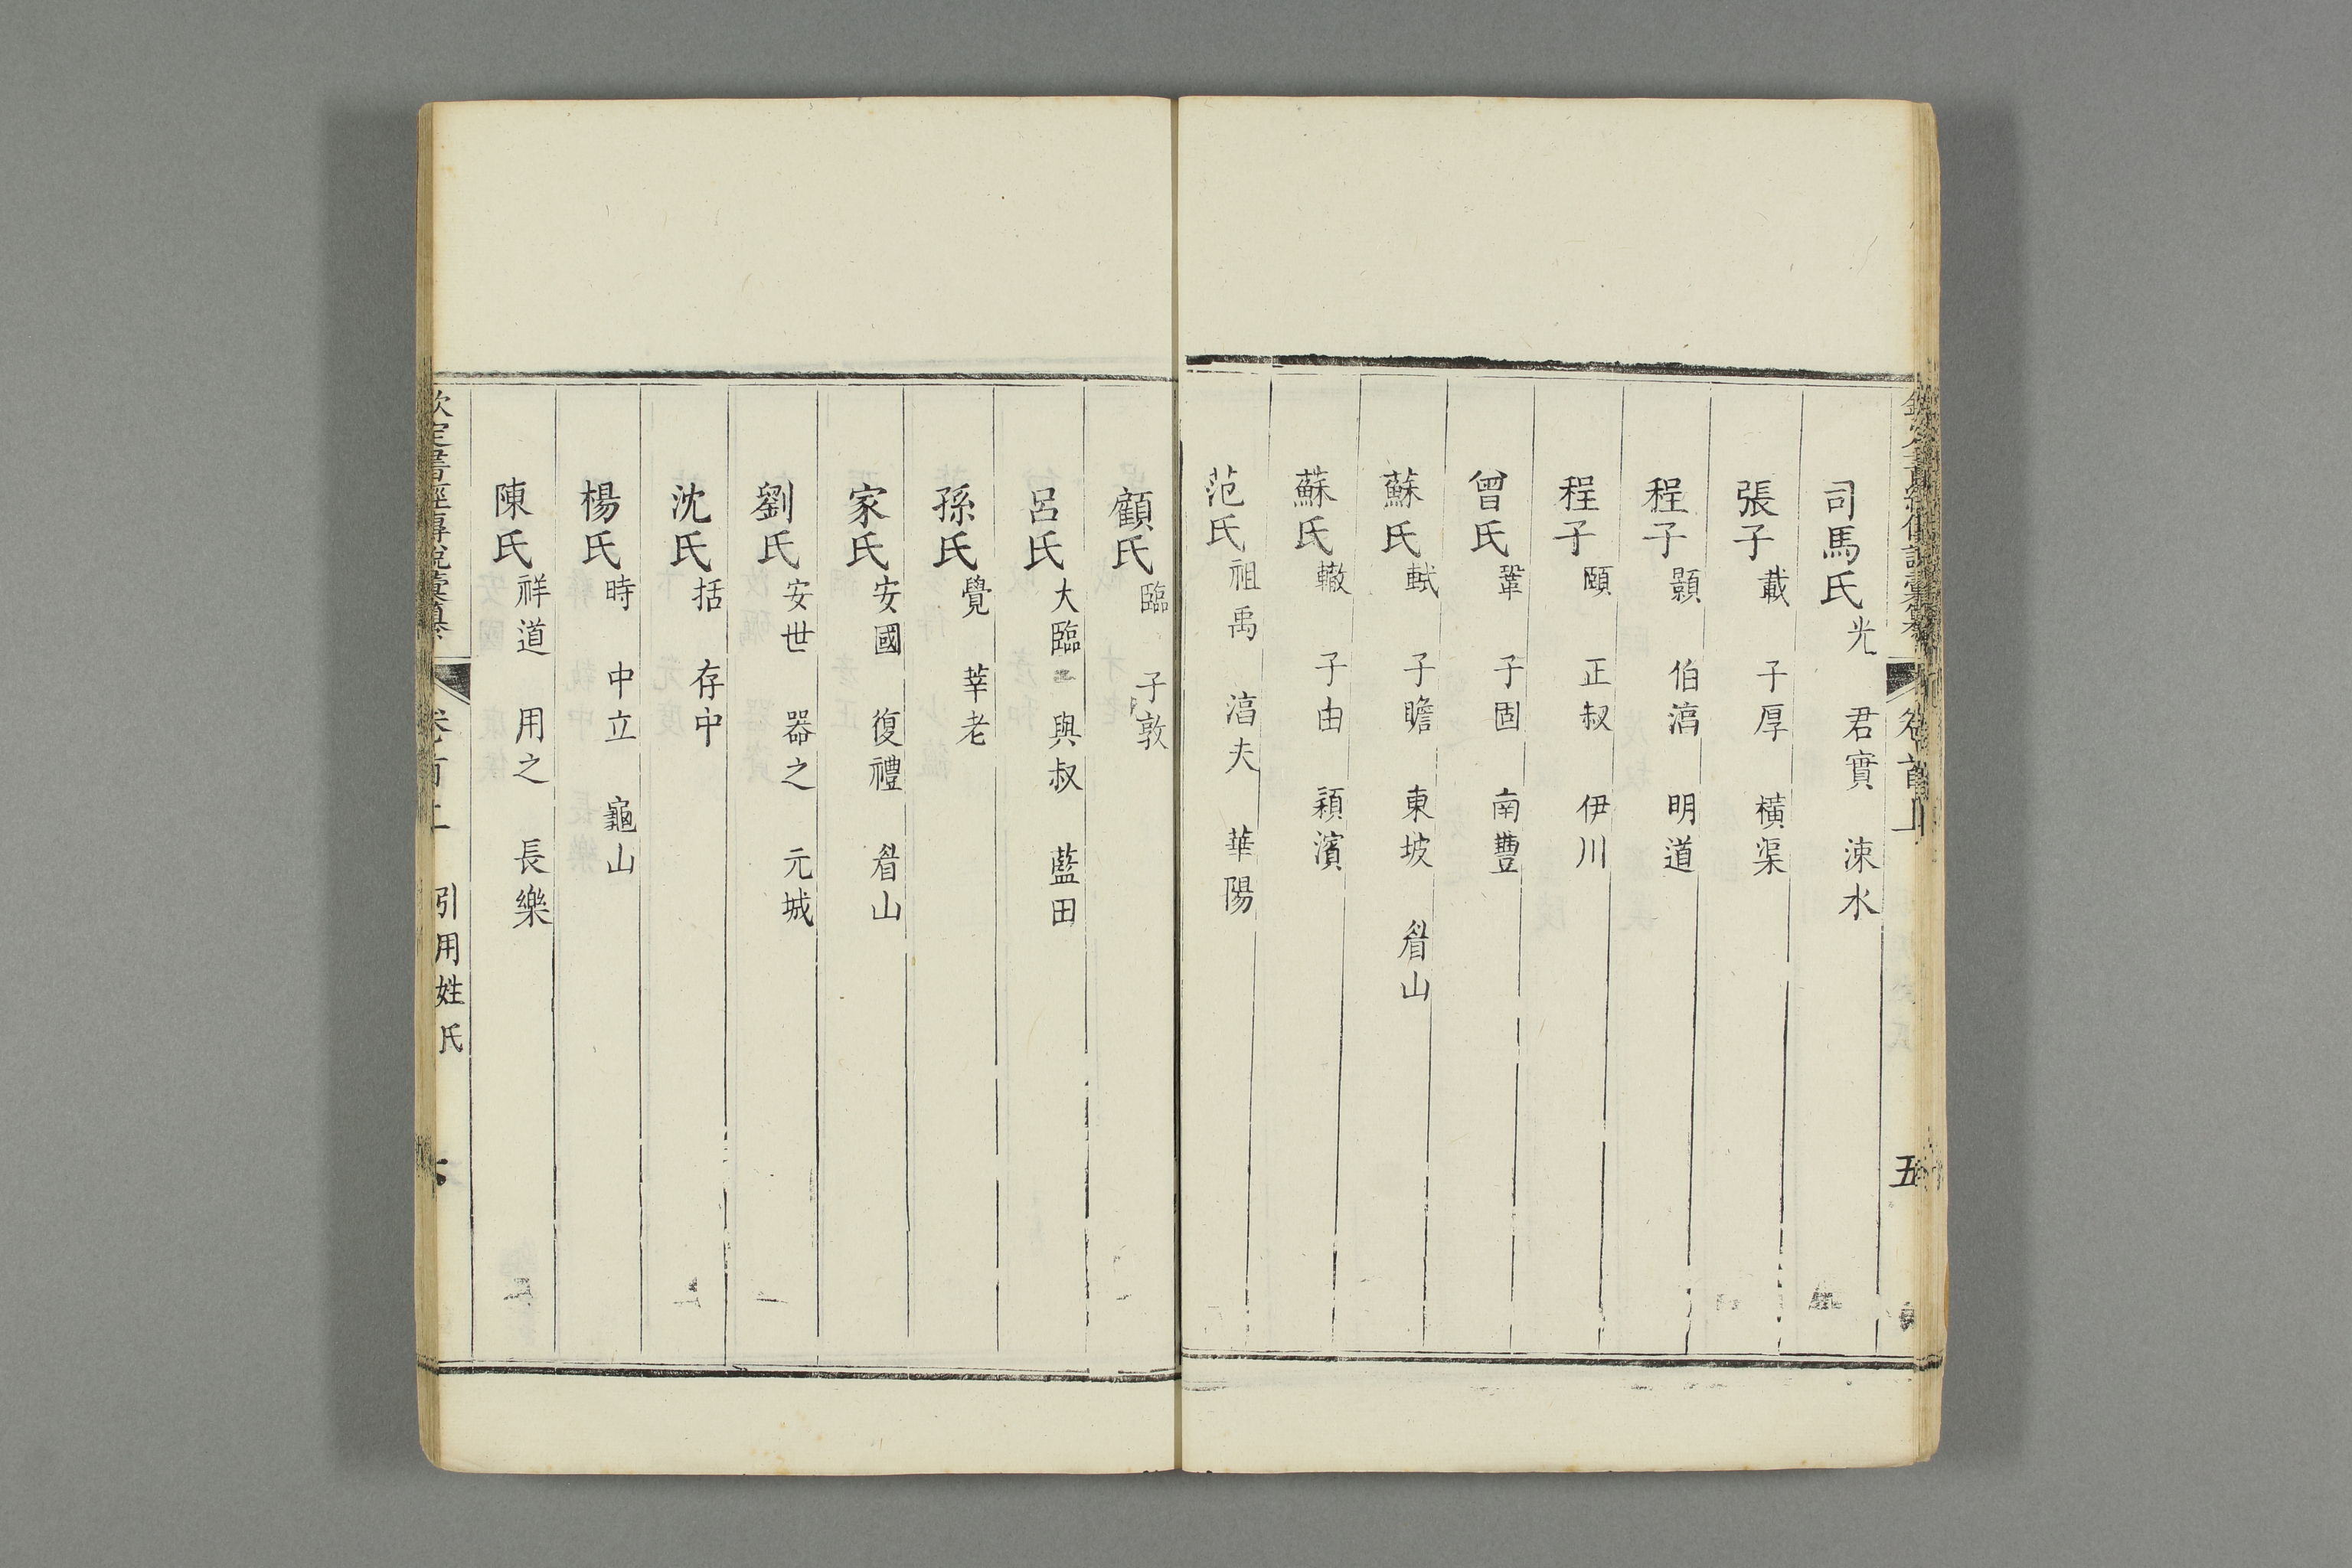 司馬氏光 君實 涑水
張子載 子厚 橫渠
程子顥 伯淳 明道
程子頤 正叔 伊川
曾氏鞏 子固 南豐
蘇氏軾 子瞻 東坡 眉山
蘇氏轍 子由 穎濱
范氏祖禹 淳夫 華陽
卷首上
五
顧氏臨 子敦
呂氏大臨 與叔 藍田
孫氏覺 莘老
家氏安國 復禮 眉山
劉氏安世 器之 元城
沈氏括 存中
楊氏時 中立 龜山
陳氏祥道 用之 長樂
欽定書經傳說彙纂 卷首上 引用姓氏